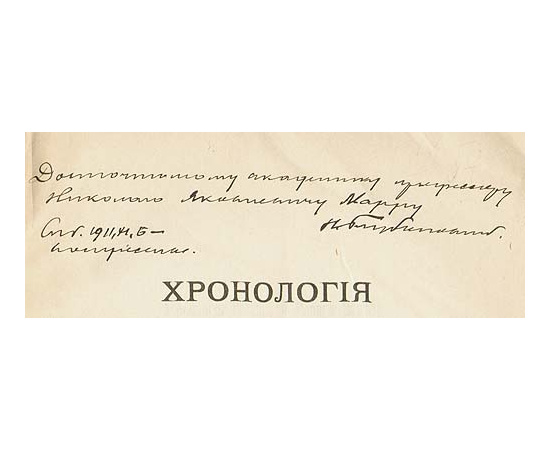 Досточтимому академику профессору
Николаю Яковлевичу Марру
Спб. 1911,
воскресенье.
ХРОНОЛОГІЯ